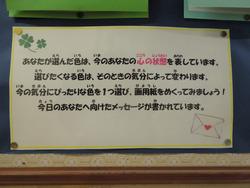 あなたが選んだ色は、今のあなたの心の状態を表しています。
選びたくなる色は、そのときの気分によって変わります。
今の気分にぴったりな色を1つ選び、画用紙をめくってみましょう!
今日のあなたへ向けたメッセージが書かれています。